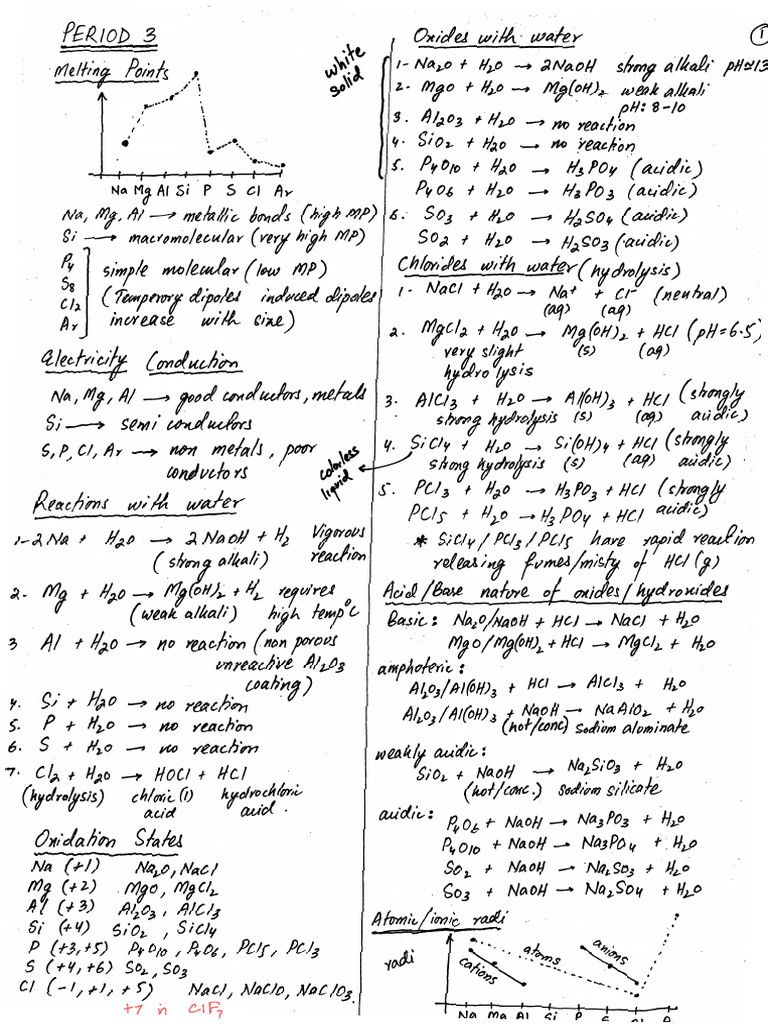 PERIOD 3
Melting Points
Na Mg Al Si P S Cl Ar
Na, Mg, Al → metallic bonds (high MP)
Si → macromolecular (very high MP)
P4
S8
Cl2
Ar
simple molecular (low MP)
(Temperory dipoles induced dipoles
increase with size)
Electricity Conduction
Na, Mg, Al → good conductors, metals
Si → semi conductors
S, P, Cl, Ar → non metals, poor
conductors
Reactions with water
1- 2Na + H2O → 2NaOH + H2 Vigorous
(strong alkali) reaction
2- Mg + H2O → Mg(OH)2 + H2 requires
(weak alkali) high temp°C
3 Al + H2O → no reaction (non porous
unreactive Al2O3
coating)
4. Si + H2O → no reaction
5. P + H2O → no reaction
6. S + H2O → no reaction
7. Cl2 + H2O → HOCl + HCl
(hydrolysis) chloric (1) hydrochloric
acid acid.
Oxidation States
Na (+1) Na2O, NaCl
Mg (+2) MgO, MgCl2
Al (+3) Al2O3, AlCl3
Si (+4) SiO2, SiCl4
P (+3, +5) P4O10, P4O6, PCl5, PCl3
S (+4, +6) SO2, SO3
Cl (-1, +1, +5) NaCl, NaClO, NaClO3.
+7 in ClF7
1
Oxides with water
white
solid
1- Na2O + H2O → 2NaOH strong alkali pH≈13
2- MgO + H2O → Mg(OH)2 weak alkali
pH: 8-10
3. Al2O3 + H2O → no reaction
4. SiO2 + H2O → no reaction
5. P4O10 + H2O → H3PO4 (acidic)
P4O6 + H2O → H3PO3 (acidic)
6. SO3 + H2O → H2SO4 (acidic)
SO2 + H2O → H2SO3 (acidic)
Chlorides with water (hydrolysis)
1- NaCl + H2O → Na+ + Cl- (neutral)
(aq) (aq)
2. MgCl2 + H2O → Mg(OH)2 + HCl (pH=6.5)
very slight (s) (aq)
hydrolysis
3. AlCl3 + H2O → Al(OH)3 + HCl (strongly
strong hydrolysis (s) (aq) acidic)
4. SiCl4 + H2O → Si(OH)4 + HCl (strongly
strong hydrolysis (s) (aq) acidic)
colorless
liquid
5. PCl3 + H2O → H3PO3 + HCl (strongly
PCl5 + H2O → H3PO4 + HCl acidic)
* SiCl4/PCl3/PCl5 have rapid reaction
releasing fumes/misty of HCl(g)
Acid/Base nature of oxides/hydroxides
Basic: Na2O/NaOH + HCl → NaCl + H2O
MgO/Mg(OH)2 + HCl → MgCl2 + H2O
amphoteric:
Al2O3/Al(OH)3 + HCl → AlCl3 + H2O
Al2O3/Al(OH)3 + NaOH → NaAlO2 + H2O
(hot/conc) sodium aluminate
weakly acidic:
SiO2 + NaOH → Na2SiO3 + H2O
(hot/conc.) sodium silicate
acidic:
P4O6 + NaOH → Na3PO3 + H2O
P4O10 + NaOH → Na3PO4 + H2O
SO2 + NaOH → Na2SO3 + H2O
SO3 + NaOH → Na2SO4 + H2O
Atomic/ionic radi
radi
cations
atoms
anions
Na Mg Al Si P S Cl A